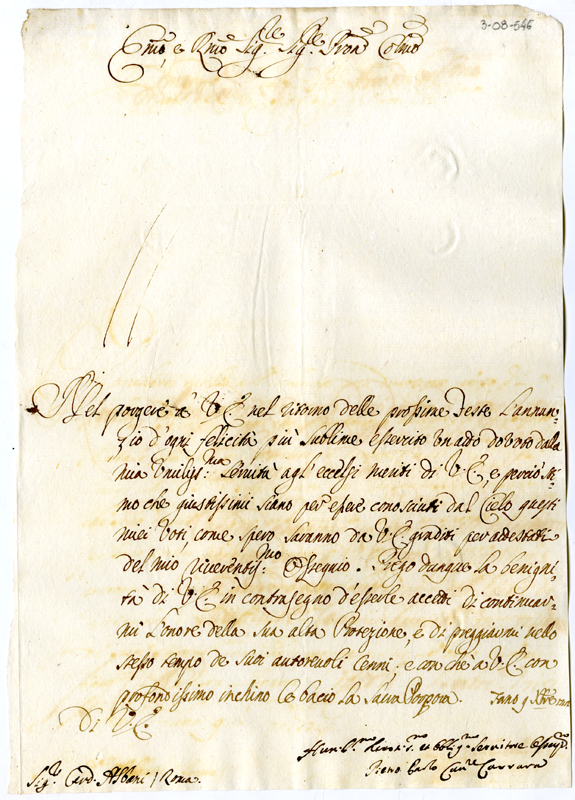 3-08-546
Emo, e Rmo Sig.re Sig.re Pron Colmo
Nel porgere à V.E. nel ritorno delle prossime Feste l'annun-
zio d'ogni felicità più sublime esercito un atto dovuto dalla
mia Umiliss:ma Servitù agl'eccelsi meriti di V.E., e perciò sti-
mo che giustissimi siano per essere conosciuti dal Cielo questi
miei Voti, come spero saranno da V.E. graditi per attestati
del mio riverentis:mo Ossequio. Priego dunque la benigni-
tà di V.E. in contrasegno d'esserle accetti di continuar-
mi l'onore della Sua alta Protezione, e di preggiarmi nello
stesso tempo de Suoi autorevoli Cenni; e con che a V.E. con
profondissimo inchino le bacio la Sacra Porpora. Fano 9 Xbre
Di V.E.
Hum.mo Devot.mo et obblig.mo Servitore Osseq.mo
Pietro Carrara
Sig.r Card. Albani / Roma.